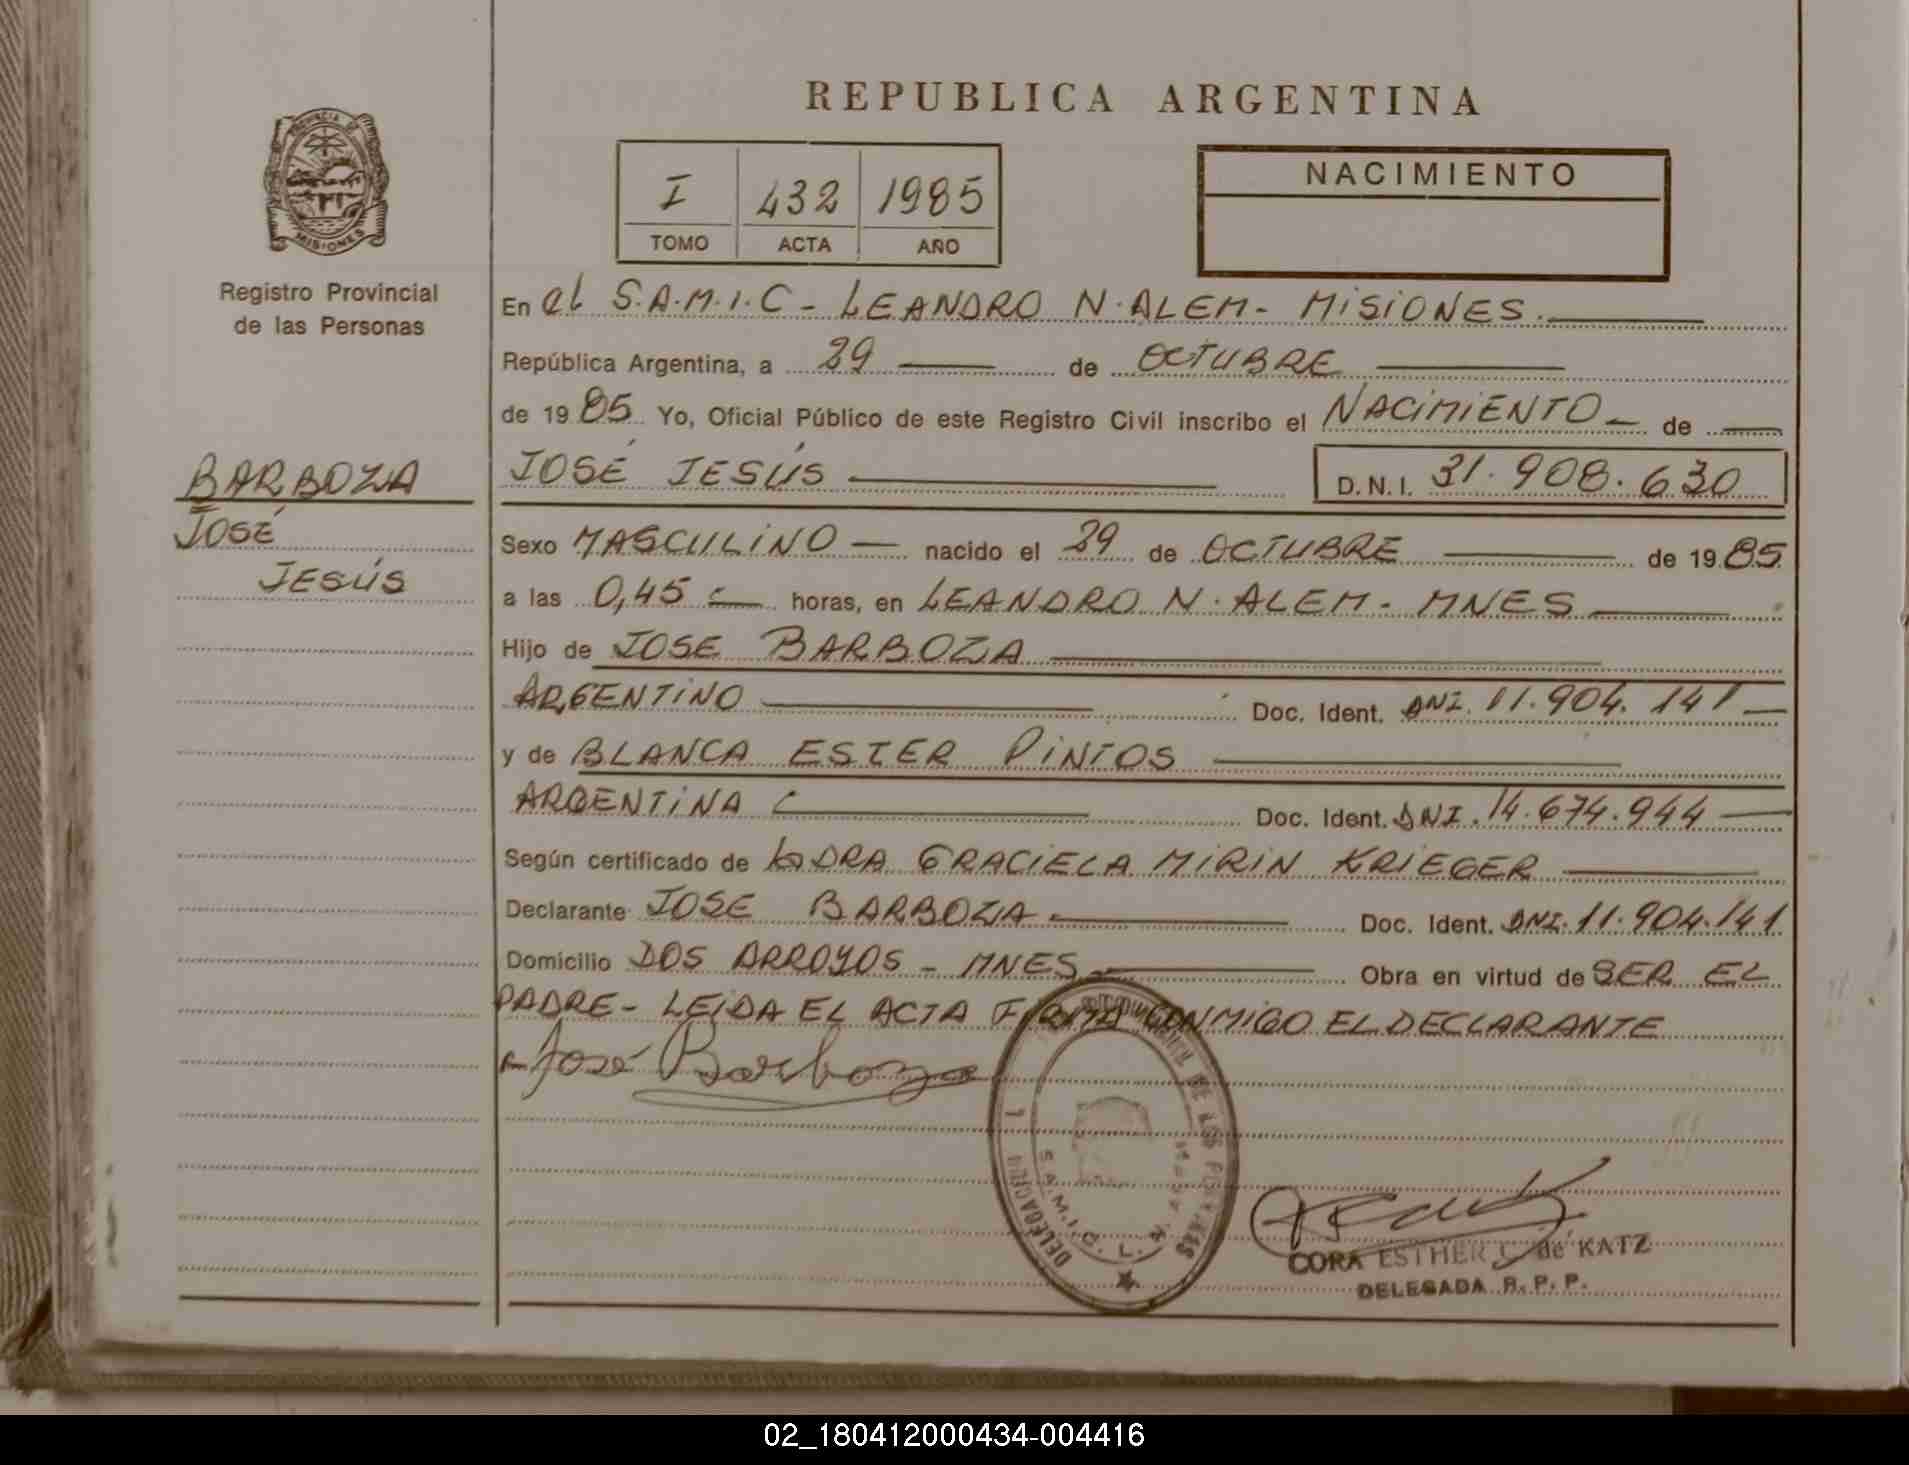 REPUBLICA ARGENTINA
PROVINCIA DE
MISIONES
Registro Provincial
de las Personas
I 432 1985
TOMO ACTA AÑO
NACIMIENTO
En el S.A.M.I.C - LEANDRO N. ALEM - MISIONES.
República Argentina, a 29 de OCTUBRE
de 1985 Yo, Oficial Público de este Registro Civil inscribo el NACIMIENTO de
BARBOZA
JOSÉ
JESÚS
JOSÉ JESÚS D.N.I. 31.908.630
Sexo MASCULINO nacido el 29 de OCTUBRE de 1985
a las 0,45 horas, en LEANDRO N. ALEM - MNES
Hijo de JOSE BARBOZA
ARGENTINO Doc. Ident. DNI. 11.904.141
y de BLANCA ESTER PINTOS
ARGENTINA Doc. Ident. DNI. 14.674.944
Según certificado de DRA GRACIELA MIRIN KRIEGER
Declarante JOSE BARBOZA Doc. Ident. DNI. 11.904.141
Domicilio DOS ARROYOS - MNES Obra en virtud de SER EL
PADRE - LEIDA EL ACTA FIRMA CONMIGO EL DECLARANTE
José Barboza
DELEGACION
S.A.M.I.C. L. N.
CORA ESTHER C. de KATZ
DELEGADA R. P. P.
02_180412000434-004416